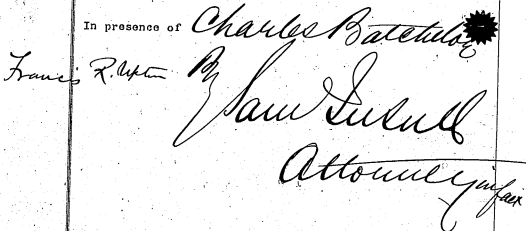 In presence of Charles Batchelor
Francis R. Upton By
Saml Insull
Attorney in fact